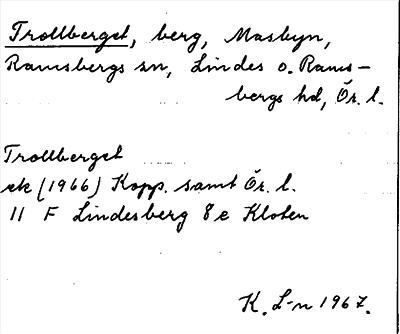 Trollberget, berg, Masbyn,
Ramsbergs sn, Lindes o. Rams-
bergs hd, Ör. l.
Trollberget
ek (1966) Kopp. samt Ör. l.
11 F Lindesberg 8 e Kloten
K. L-n 1967.